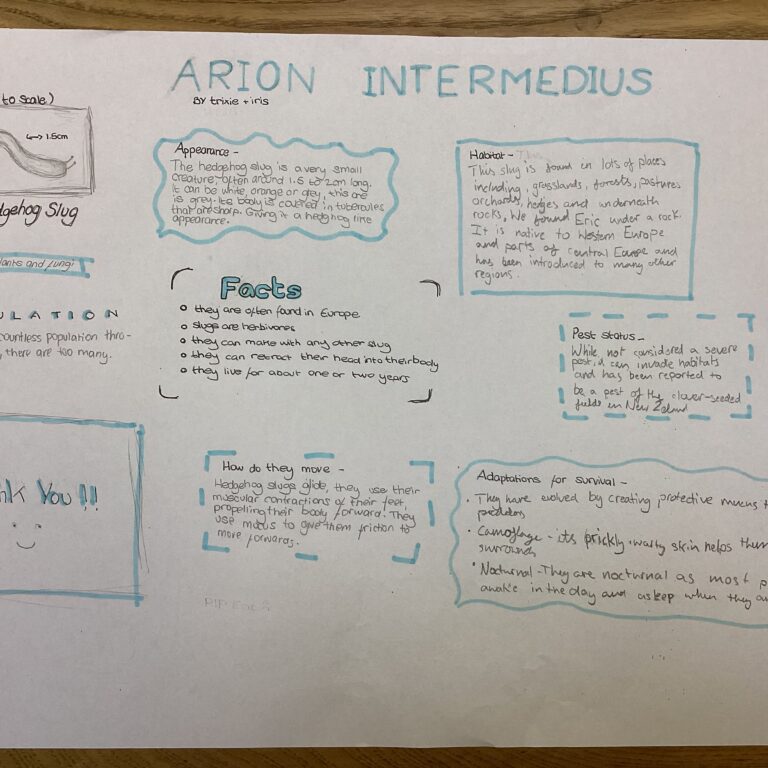 ARION INTERMEDIUS
BY trixie + iris
to scale)
1.5cm
dgehog Slug
lants and fungi
ULATION
countless population thro-
, there are too many.
nk You !!
Appearance -
The hedgehog slug is a very small
creature, often around 1.5 to 2cm long.
It can be white, orange or grey, this are
is grey. Its body is covered in tubercules
that are sharp. Giving it a hedgehog like
appearance.
Facts
they are often found in Europe
slugs are herbivores
they can mate with any other slug
they can retract their head into their body
they live for about one or two years
How do they move -
Hedgehog slugs glide, they use their
muscular contractions of their feet
propelling their body forward. They
use mucus to give them friction to
move forwards.
RIP Eric
Habitat - This
This slug is found in lots of places
including, grasslands, forests, pastures
orchards, hedges and underneath
rocks, We found Eric under a rock.
It is native to Western Europe
and parts of central Europe and
has been introduced to many other
regions.
Pest status -
While, not considered a severe
pest, it can invade habitats
and has been reported to
be a pest of the clover-seeded
fields in New Zealand
Adaptations for survival -
They have evolved by creating protective mucus t
Camoflage - its prickly warty skin helps them
surrounds
Nocturnal - They are nocturnal as most p
awake in the day and asleep when they a